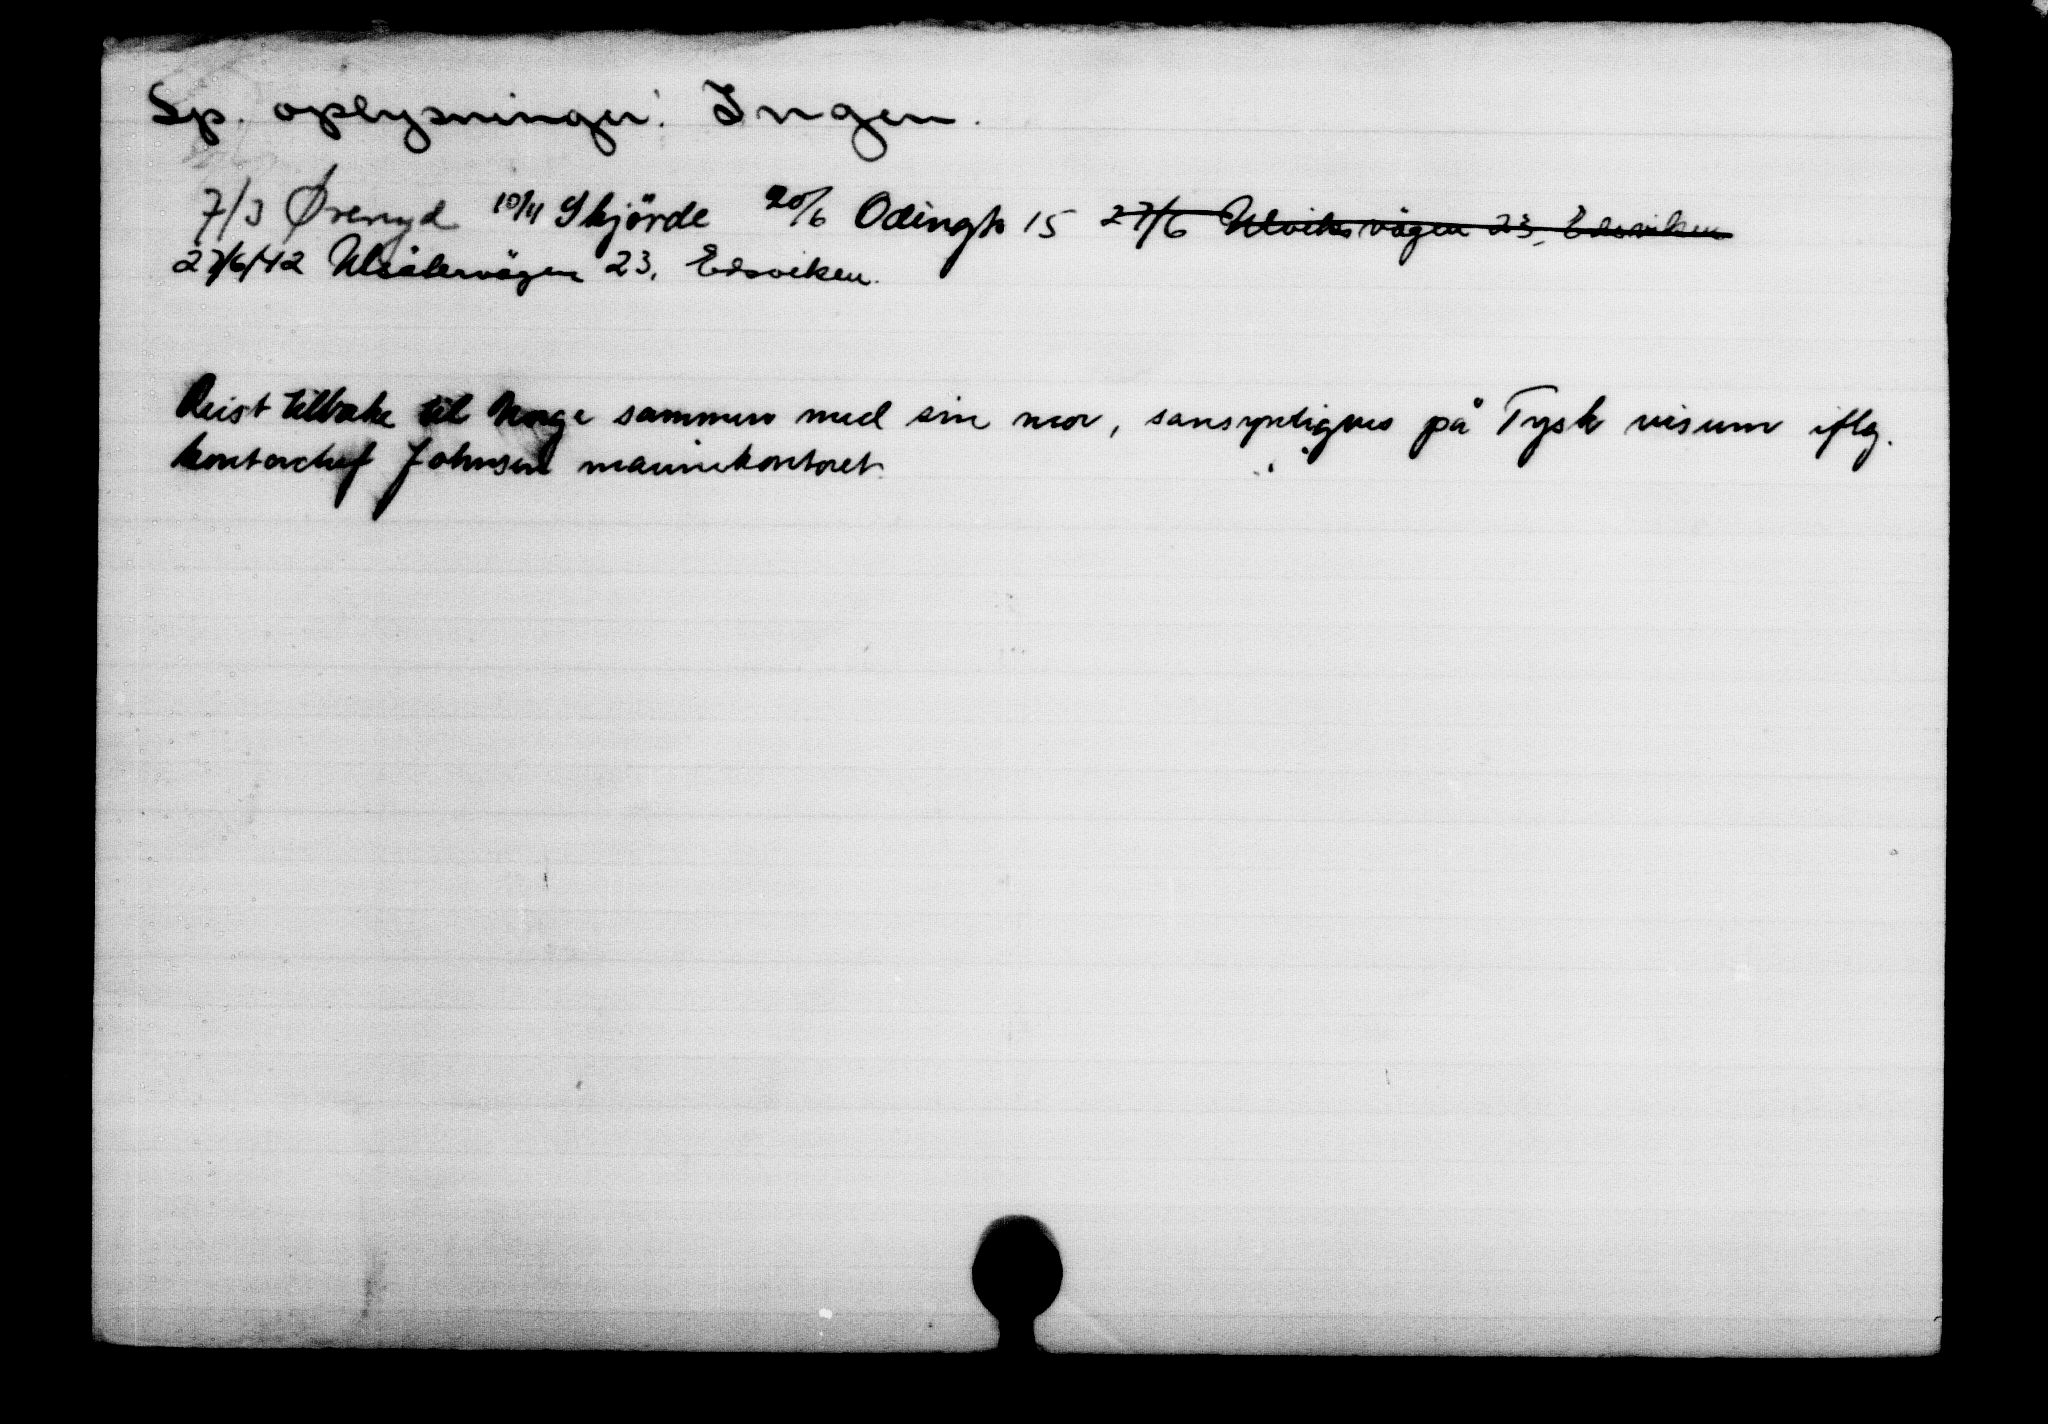 Sp. oplysninger: Ingen.
7/3 Øreryd 10/11 Skjörde 20/6 Odingt 15 27/6 Ulviksvägen 23, Edsviken
27/6/42 23, Edsviken.
Reist tilbake til Norge sammen med sin mor, sansynligvis på Tysk visum iflg.
kontorchef Johnsen marinekontoret.